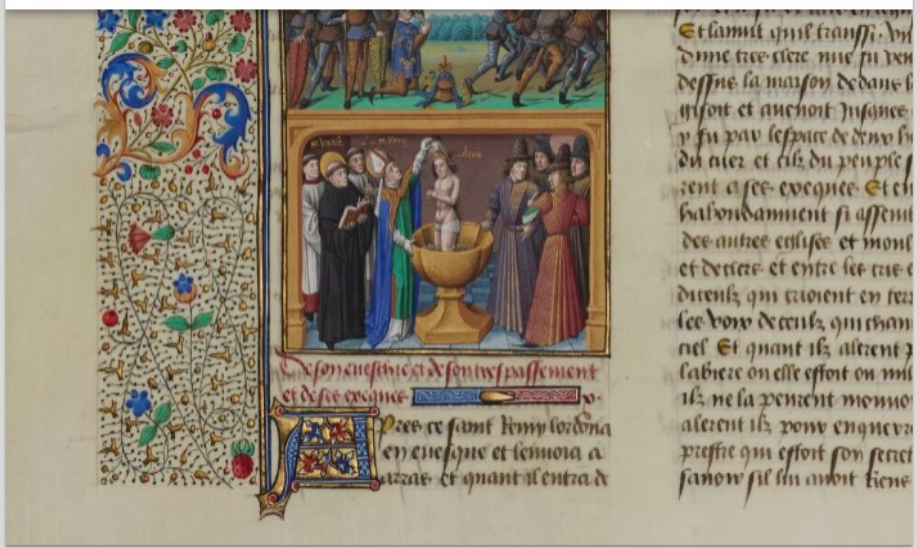 De son eueschie et de son trespassement
et de ses exeques. v.
Apres ce saint Remy lordona
en euesque et lenuoia a
arras et quant il entra de
Et lamit quil transsi. Vn
dune tres clere nue fu veu
dessus la maison dedans l
gisoit et auenoit Jusques
y fu par lespace de deux h
du cuer et cilz du peuple s
rent a ses exeques Et en
habondamment si assem
des autres eglises et mou
et dociers et entre les cris
diceulz qui crioient en ter
les voix de ceulz qui chan
ciel Et quant ilz alerent p
labiere ou elle estoit ou mil
ilz ne la peurent mouuo
alerent ilz pour enquerr
prestre qui estoit son secret
sauoir sil lui auoit Riens